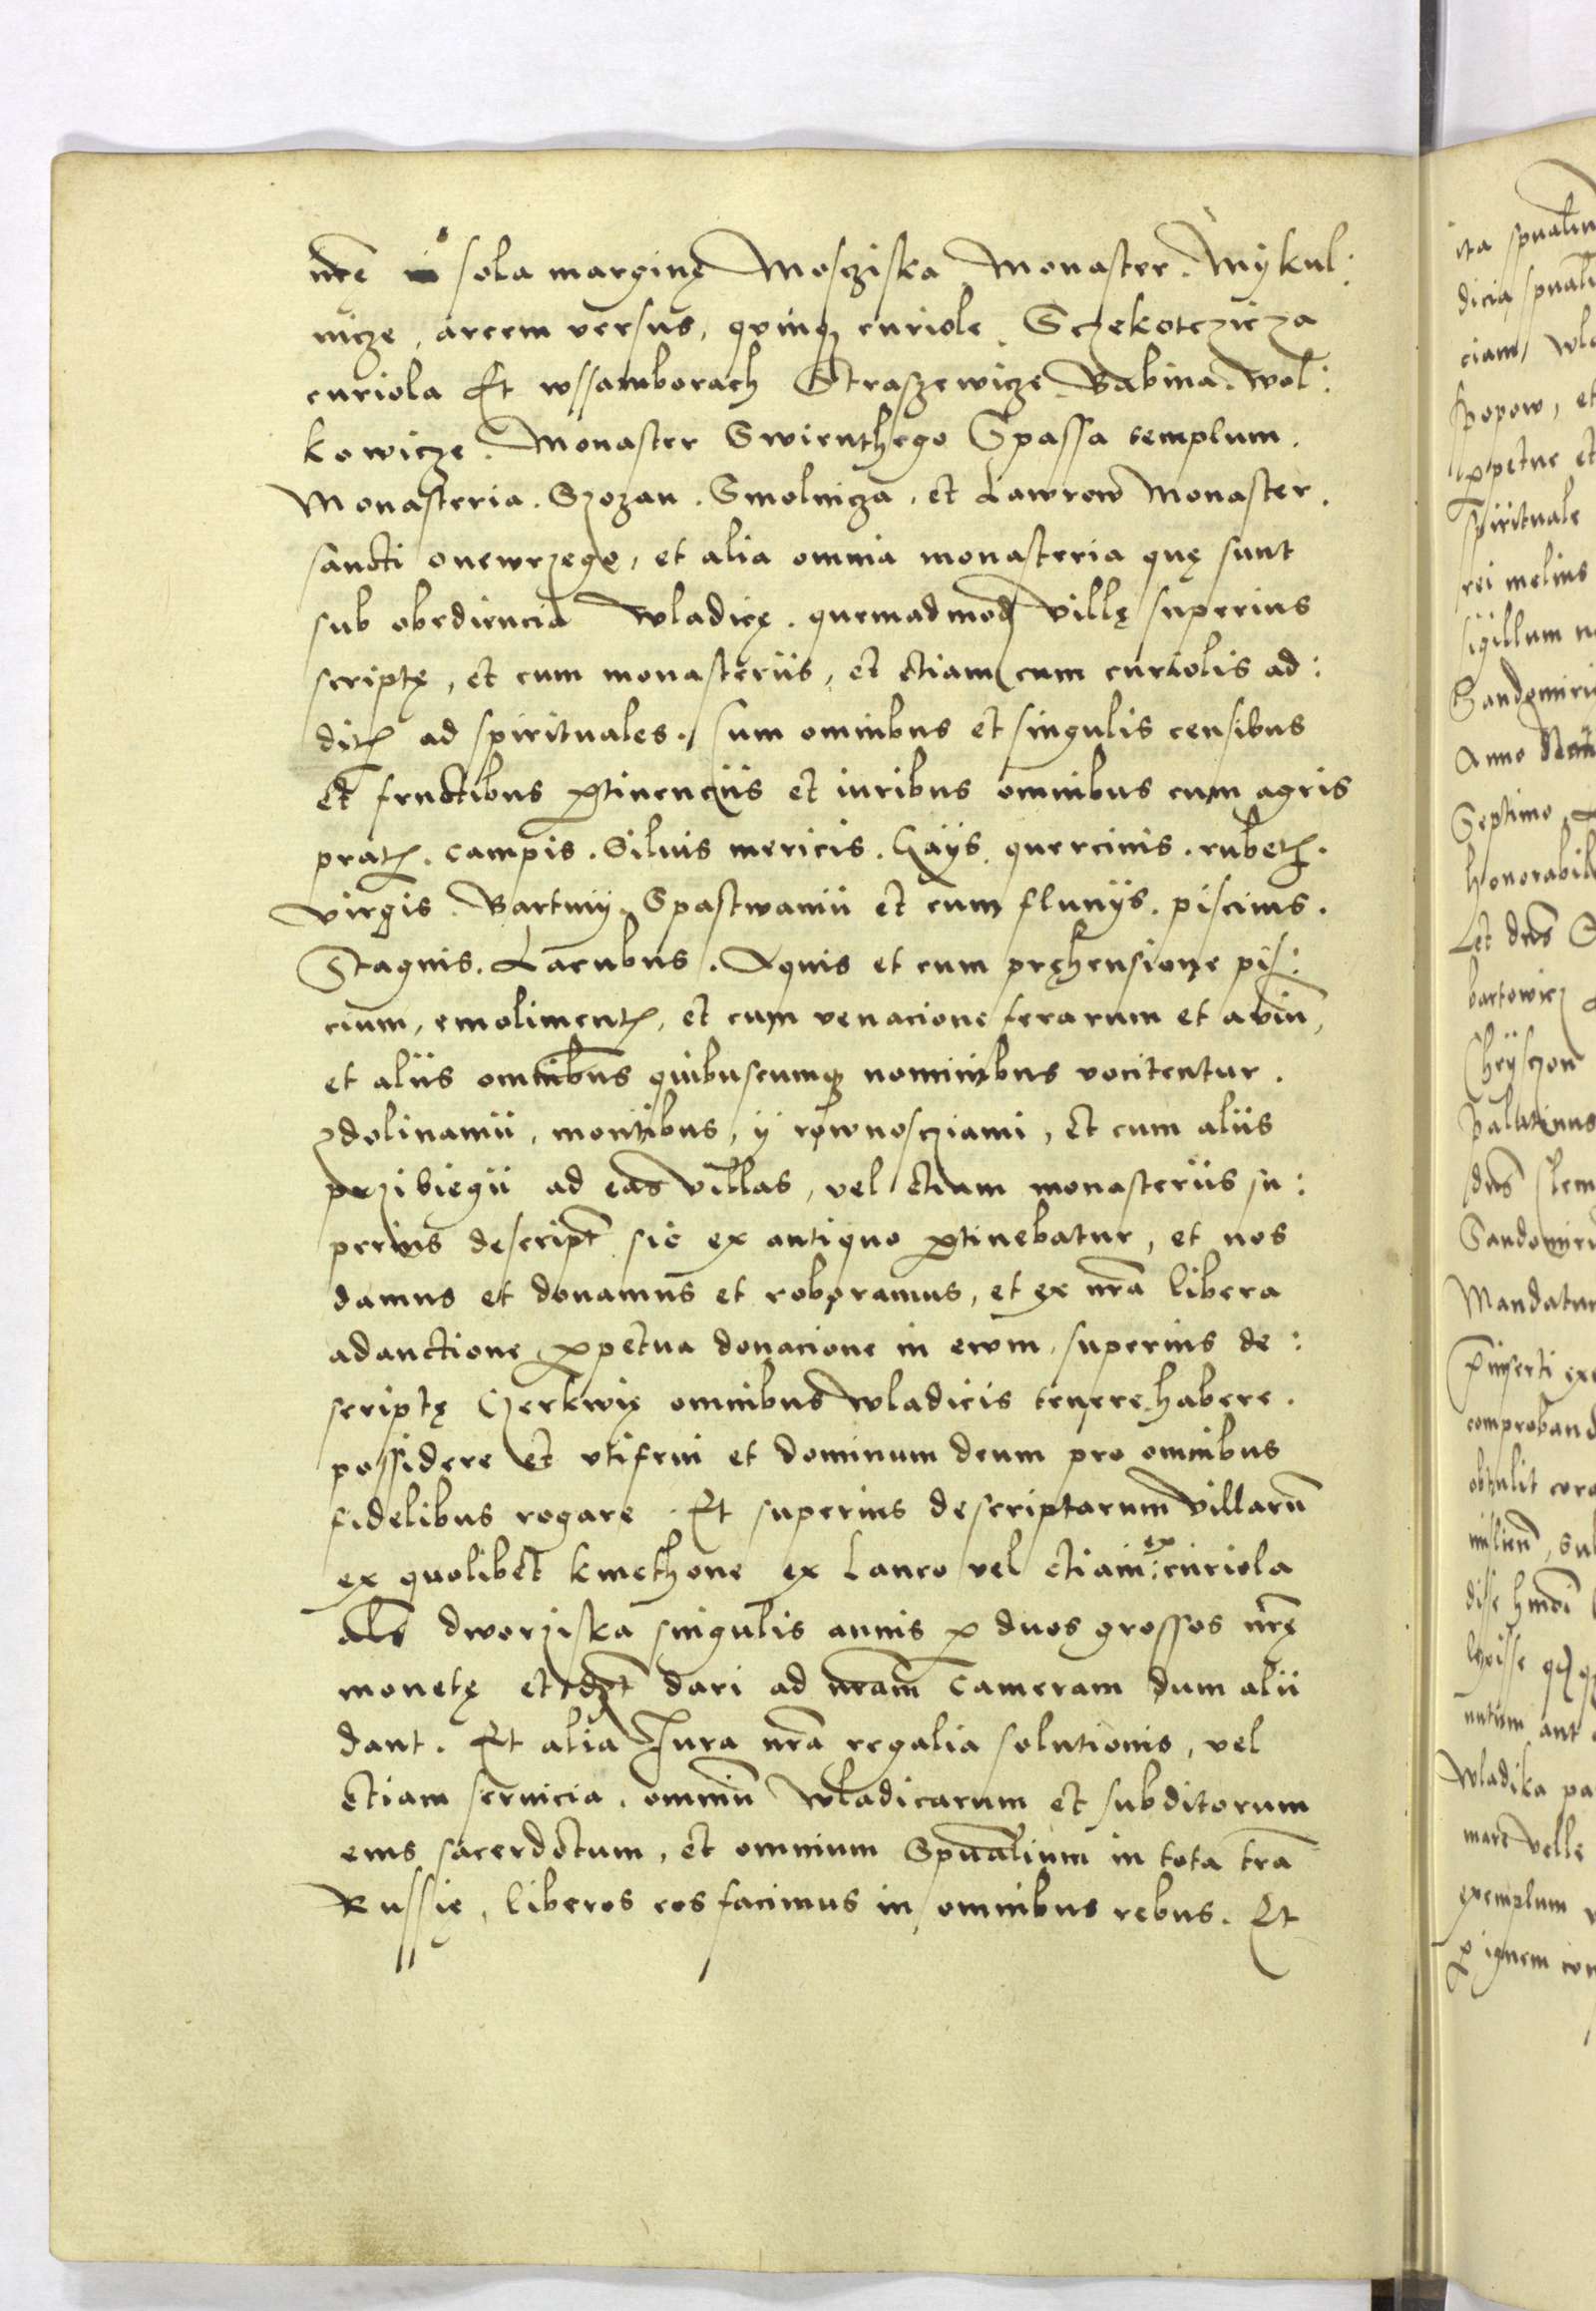 nrę in sola marginę Mosziska Monaster. Mykul:
nicze, arcem versus, quinq3 curiole. Sczekotczicza
curiola Et wssamborach Straszewicze Babina. Wol:
kowicze. Monaster Swienthego Spassa templum.
Monasteria. Szozan. Smolnicza, et Lawrow Monaster.
sancti onewrzego, et alia omnia monasteria quę sunt
sub obediencia Wladicę. quemadmod villę superius
scriptę, et cum monasteriis, et etiam cum curiolis ad:
ditꝭ ad spirituales. sum omnibus et singulis censibus
et fructibus ꝑtinenciis et iuribus omnibus cum agris
pratꝭ. campis. Siluis mericis. Gays. quercinis. rubetꝭ.
virgis. Bartmy. Spastwamii et cum fluuys. piscinis.
Stagnis. Lacubus. Aquis et cum pręhensione pis:
cium, emolimentꝭ, et cum venacione ferarum et aviū,
et aliis omnibus quibuscumq3 nominibus vocitentur.
zdolinamii, montibus, ÿ rownosciami, et cum aliis
przibiegii ad eas villas, vel etiam monasteriis su:
perius descript sic ex antiquo ꝑtinebatur, et nos
damus et donamus et roboramus, et ex nrā libera
adauctione ꝑpetua donacione in ewm superius de:
scriptę Czerkwię omnibus Wladicis tenere habere.
possidere et vtifrui et dominum deum pro omnibus
fidelibus rogare. Et superius descriptarum villarū
ex quolibet kmethone ex Laneo vel etiam ex curiola
als dworziska singulis annis ꝑ duos grossos nrę
monetę et dari ad nram Cameram dum alii
dant. Et alia Jura nrā regalia solutionis, vel
Etiam servicia. omniū Wladicarum et subditorum
eius sacerdotum, et omnium Spūalium in tota trā
Russię, liberos eos facimus in omnibus rebus. Et
ita spualiu
dicia spuali
ciam, wla
popow, et
ꝑpetue et
spirituale
rei melius
sigillum n
Sandomiri
Anno
Septimo
honorabil
Let dns S
bartowicz
Palatinus
dns Clem
Sandomiri
Mandatu
ꝑinserti exe
comproband
obtulit cora
Wladika pa
mare velle
exemplum
ꝑ ignem con